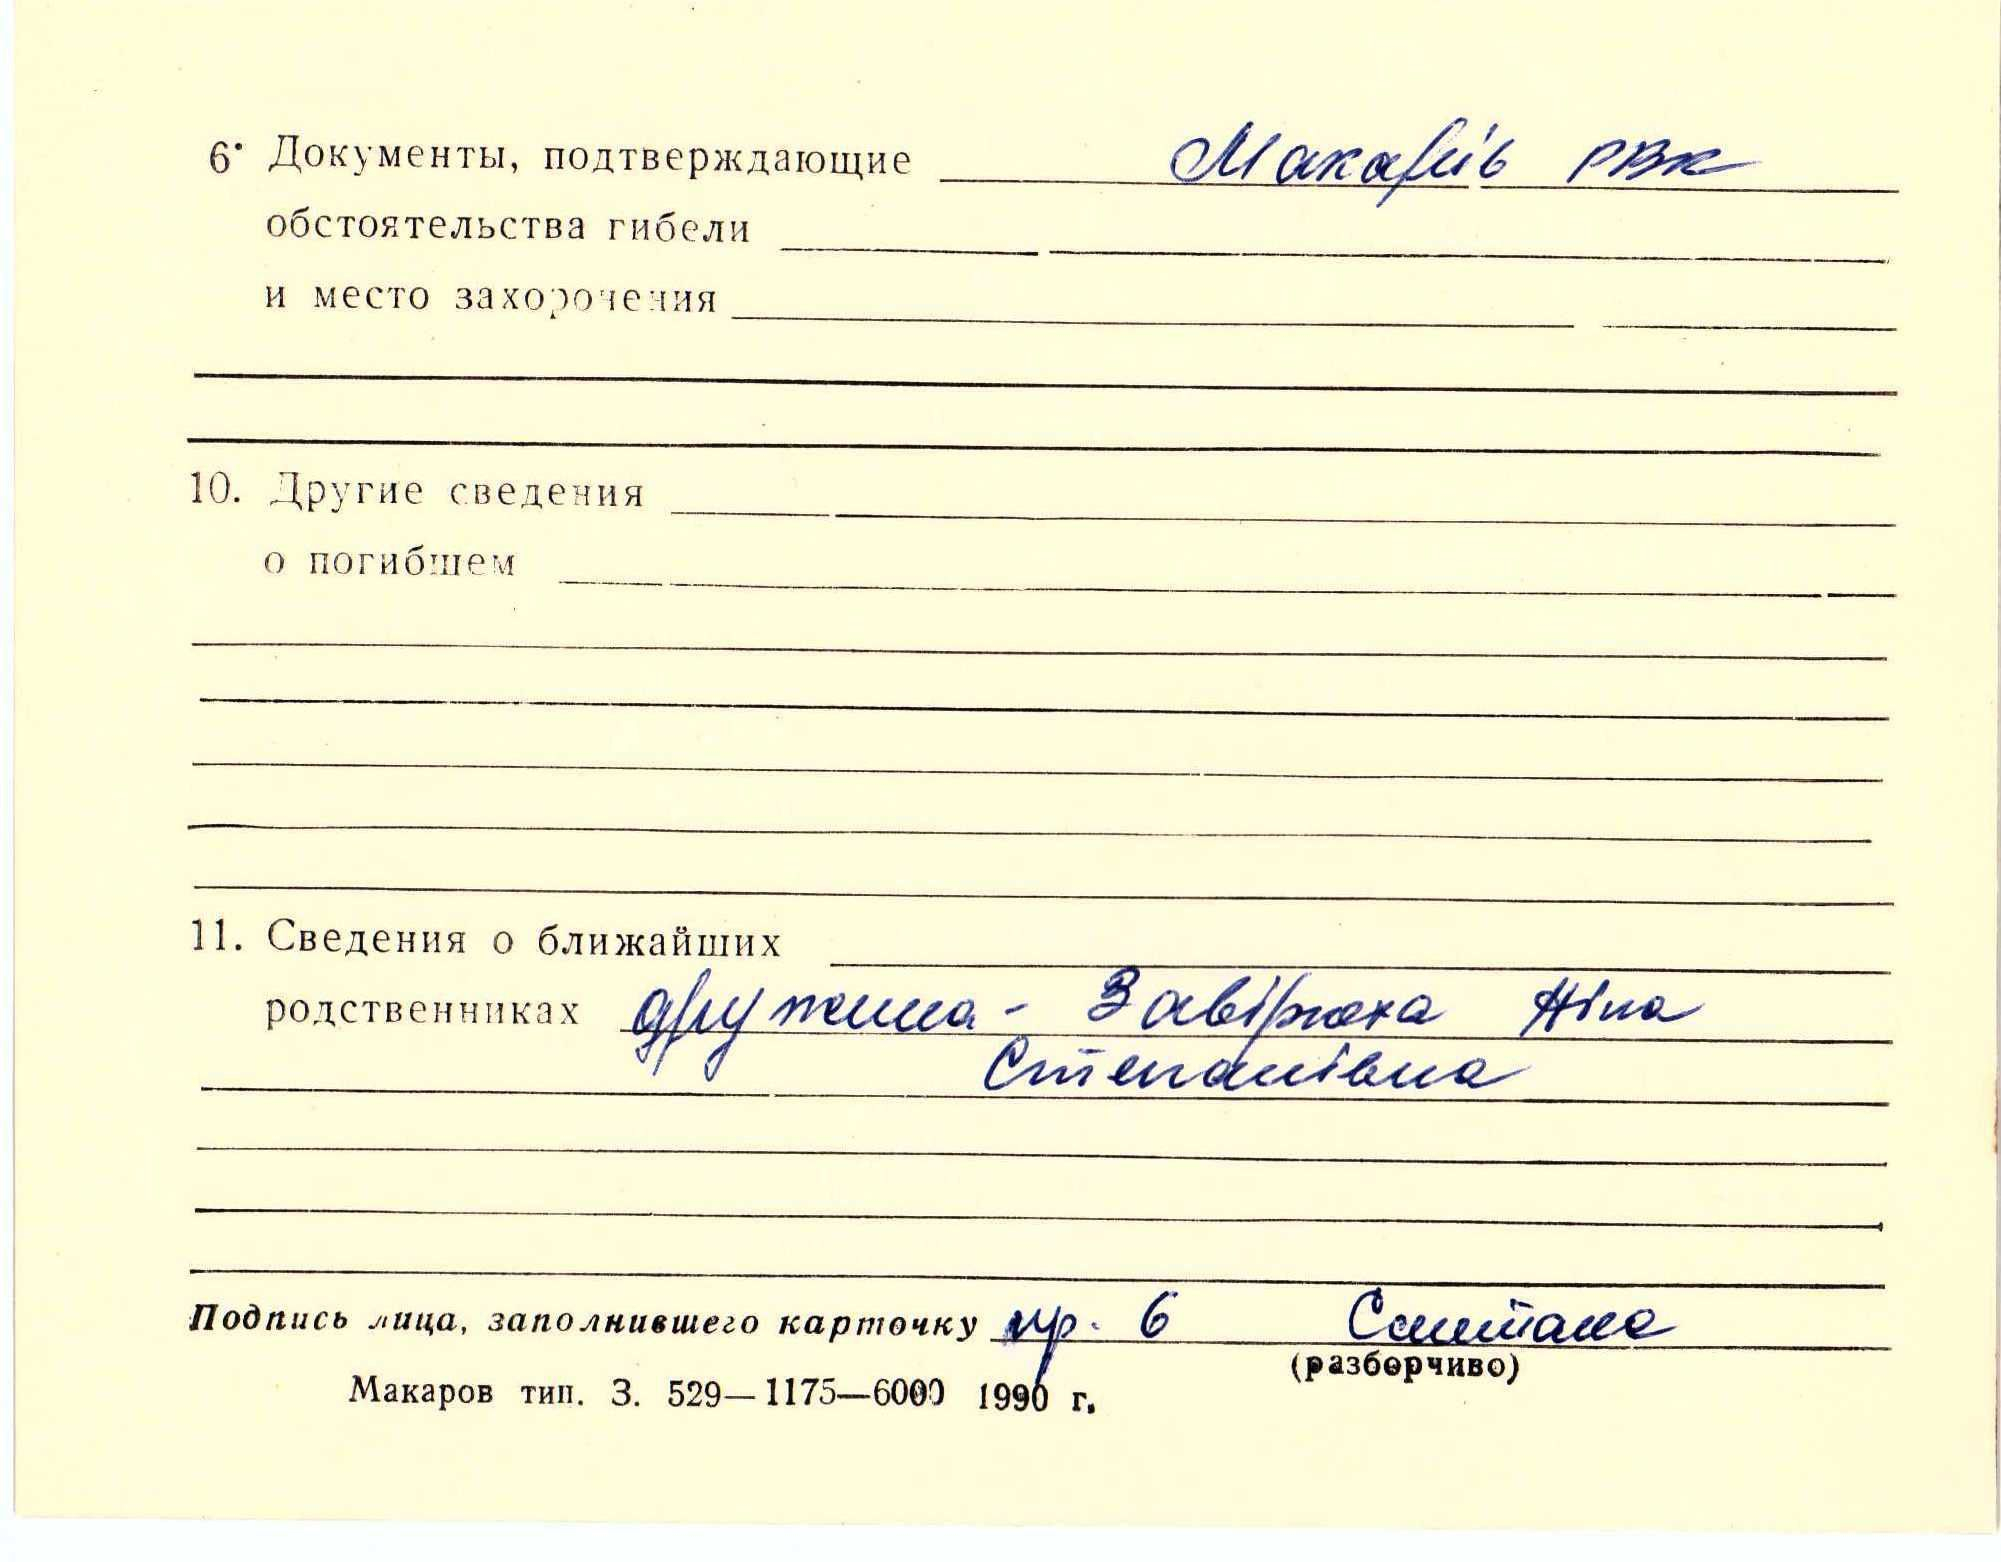 6. Документы, подтверждающие Макарів РВК
обстоятельства гибели
и место захоронения
10. Другие сведения
о погибшем
11. Сведения о ближайших
родственниках дружина - Завірюха Ніна
Степанівна
Подпись лица, заполнившего карточку пр. 6 Сметана
(разборчиво)
Макаров тип. З. 529—1175—6000 1990 г.